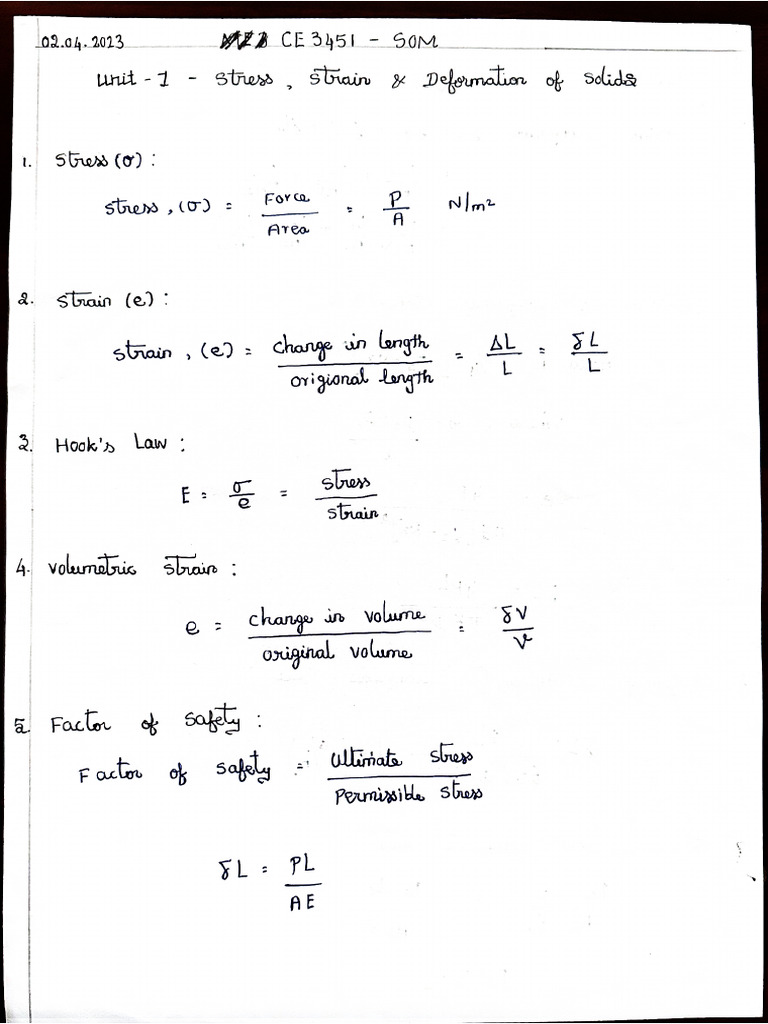 02.04.2023 CE 3451 - SOM
Unit - 1 - Stress, Strain & Deformation of Solids
1. Stress (σ) :
Stress, (σ) = Force / Area = P / A N/m²
2. Strain (e) :
Strain, (e) = Change in length / Origional length = ΔL / L = δL / L
3. Hook's Law :
E = σ / e = Stress / Strain
4. Volumetric Strain :
e = Change in volume / Original volume = δV / V
5. Factor of Safety :
Factor of Safety = Ultimate Stress / Permissible Stress
δL = PL / AE